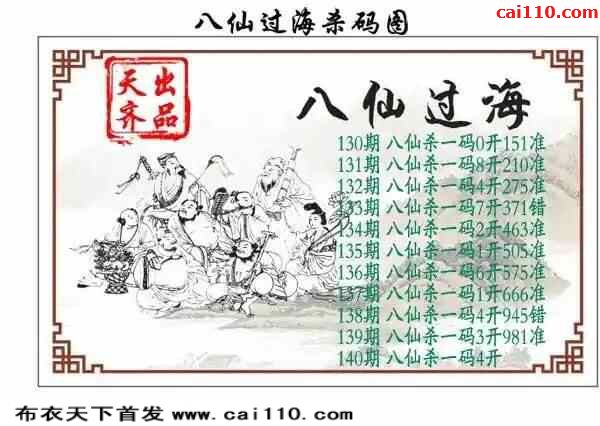 八仙过海杀码图
cai110.com
天齐出品
八仙过海
130期 八仙杀一码0开151准
131期 八仙杀一码8开210准
132期 八仙杀一码4开275准
133期 八仙杀一码7开371错
134期 八仙杀一码2开463准
135期 八仙杀一码1开505准
136期 八仙杀一码6开575准
137期 八仙杀一码1开666准
138期 八仙杀一码4开945错
139期 八仙杀一码3开981准
140期 八仙杀一码4开
布衣天下首发 www.cai110.com